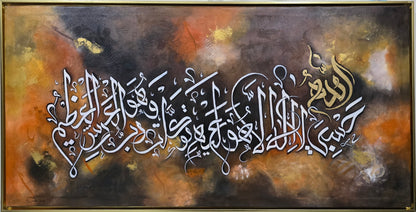 حسبي الله لا إله إلا هو عليه توكلت وهو رب العرش العظيم